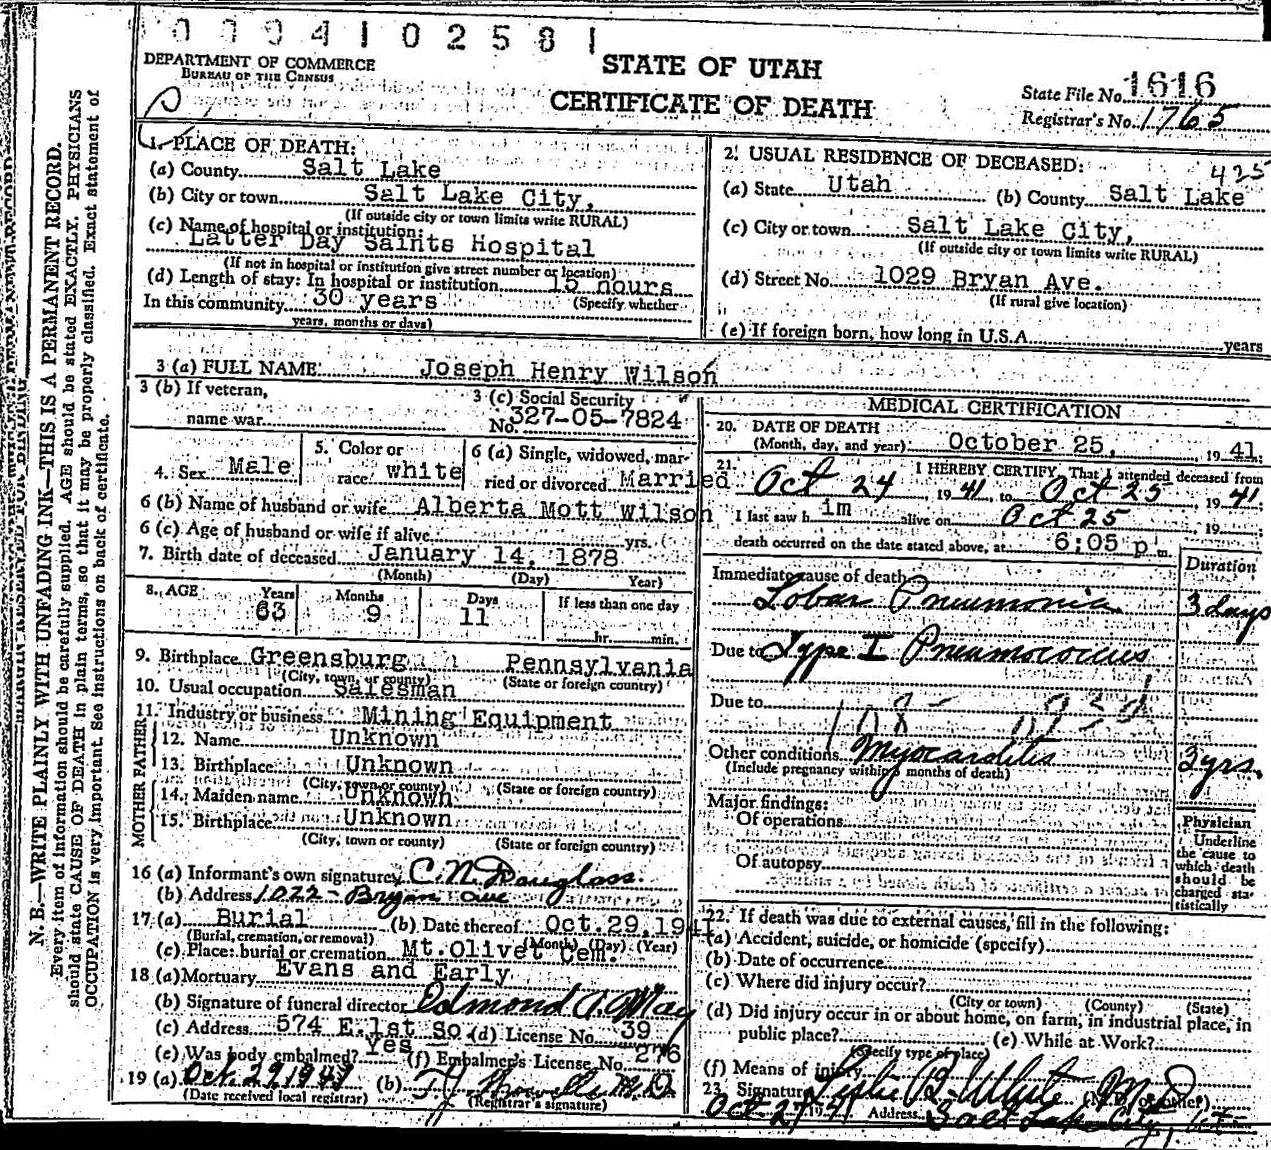 009410258 1
DEPARTMENT OF COMMERCE
BUREAU OF THE CENSUS
STATE OF UTAH
CERTIFICATE OF DEATH
State File No. 1616
Registrar's No. 1765
1. PLACE OF DEATH:
(a) County Salt Lake
(b) City or town Salt Lake City,
(If outside city or town limits write RURAL)
(c) Name of hospital or institution:
Latter Day Saints Hospital
(If not in hospital or institution give street number or location)
(d) Length of stay: In hospital or institution 15 hours
In this community 30 years (Specify whether
years, months or days)
2. USUAL RESIDENCE OF DECEASED: 425
(a) State Utah (b) County Salt Lake
(c) City or town Salt Lake City,
(If outside city or town limits write RURAL)
(d) Street No. 1029 Bryan Ave.
(If rural give location)
(e) If foreign born, how long in U.S.A. years
3 (a) FULL NAME Joseph Henry Wilson
3 (b) If veteran,
name war
3 (c) Social Security
No. 327-05-7824
4. Sex Male
5. Color or
race white
6 (a) Single, widowed, mar-
ried or divorced Married
6 (b) Name of husband or wife Alberta Mott Wilson
6 (c) Age of husband or wife if alive yrs.
7. Birth date of deceased January 14, 1878
(Month) (Day) Year)
8. AGE Years Months Days If less than one day
63 9 11
hr. min.
9. Birthplace Greensburg Pennsylvania
(City, town, or county) (State or foreign country)
10. Usual occupation Salesman
11. Industry or business Mining Equipment
FATHER
12. Name Unknown
13. Birthplace Unknown
(City, town or county) (State or foreign country)
MOTHER
14. Maiden name Unknown
15. Birthplace Unknown
(City, town or county) (State or foreign country)
16 (a) Informant's own signature C. N. Douglass
(b) Address 1022 - Bryan Ave
17 (a) Burial (b) Date thereof Oct. 29, 1941
(Burial, cremation, or removal) (Month) (Day) (Year)
(c) Place: burial or cremation Mt. Olivet Cem.
18 (a) Mortuary Evans and Early
(b) Signature of funeral director Edmond A. May
(c) Address 574 E. 1st So. (d) License No. 39
(e) Was body embalmed? Yes (f) Embalmer's License No. 276
19 (a) Oct. 29, 1941 (b) M.D.
(Date received local registrar) (Registrar's signature)
MEDICAL CERTIFICATION
20. DATE OF DEATH
(Month, day, and year) October 25, 19 41
21. I HEREBY CERTIFY, That I attended deceased from
Oct 24, 19 41, to Oct 25, 19 41;
I last saw him alive on Oct 25, 19
death occurred on the date stated above, at 6:05 p m.
Duration
Immediate cause of death
Lobar Pneumonia 3 days
Due to Type I Pneumococcus
Due to
Other conditions Myocarditis 3 yrs.
(Include pregnancy within 3 months of death)
Major findings:
Of operations
Of autopsy
Physician
Underline
the cause to
which death
should be
charged sta-
tistically
22. If death was due to external causes, fill in the following:
(a) Accident, suicide, or homicide (specify)
(b) Date of occurrence
(c) Where did injury occur?
(City or town) (County) (State)
(d) Did injury occur in or about home, on farm, in industrial place, in
public place? (e) While at Work?
(Specify type of place)
(f) Means of injury
23. Signature Leslie B. White M.D.
Oct 27 1941 Address Salt Lake City, Ut
N. B.—WRITE PLAINLY WITH UNFADING INK—THIS IS A PERMANENT RECORD.
Every item of information should be carefully supplied. AGE should be stated EXACTLY. PHYSICIANS
should state CAUSE OF DEATH in plain terms, so that it may be properly classified. Exact statement of
OCCUPATION is very important. See instructions on back of certificate.